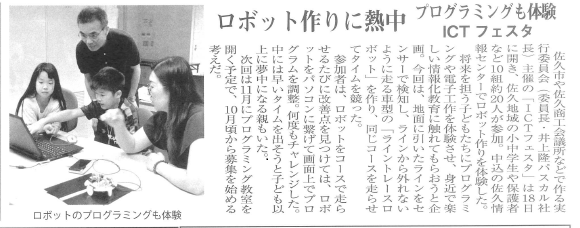 ロボット作りに熱中
プログラミングも体験
ICTフェスタ
佐久市や佐久商工会議所などで作る実
行委員会（委員長・井上隆パスカル社
長）主催の「ＩＣＴフェスタ」は18日
に開き、佐久地域の小中学生や保護者
など10組約20人が参加。中込の佐久情
報センターでロボット作りを体験した。
将来を担う子どもたちにプログラミ
ングや電子工作を体験させ、身近で楽
しい情報化教育に触れてもらおうと企
画。今回は、地面に引いたラインをセ
ンサーで検知し、ラインから外れない
ように走る車型の「ライントレースロ
ボット」を作り、同じコースを走らせ
てタイムを競った。
参加者は、ロボットをコースで走ら
せるたびに改善点を見つけては、ロボ
ットをパソコンに繋げて画面上でプロ
グラムを調整。何度もチャレンジした。
中には早いタイムを出そうと子ども以
上に夢中になる親もいた。
次回は11月にプログラミング教室を
開く予定で、10月頃から募集を始める
考えだ。
ロボットのプログラミングも体験